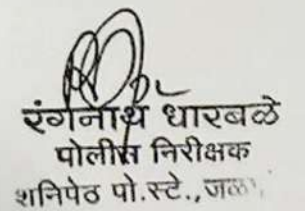 रंगनाथ धारबळे
पोलीस निरीक्षक
शनिपेठ पो.स्टे.,